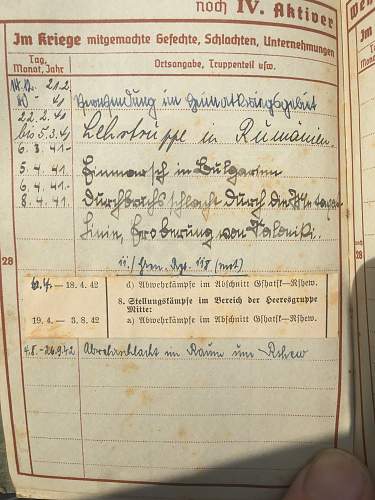 noch IV. Aktiver
Im Kriege mitgemachte Gefechte, Schlachten, Unternehmungen
Tag, Monat, Jahr
Ortsangabe, Truppenteil usw.
Verwendung im Heimatkriegsgebiet
22.2.41
bis 5.3.41 Lehrtruppe in Rumänien.
6.3.41-
5.4.41 Einmarsch in Bulgarien
6.4.41- Durchbruchsschlacht durch die
8.4.41
Linie, Eroberung von Saloniki.
28
(mot)
— 18. 4. 42 d) Abwehrkämpfe im Abschnitt Gshatsk—Rshew.
8. Stellungskämpfe im Bereich der Heeresgruppe
Mitte:
19. 4. — 3. 8. 42 a) Abwehrkämpfe im Abschnitt Gshatsk—Rshew.
4.8.-26.9.42 Abwehrschlacht im Raum um Rshew